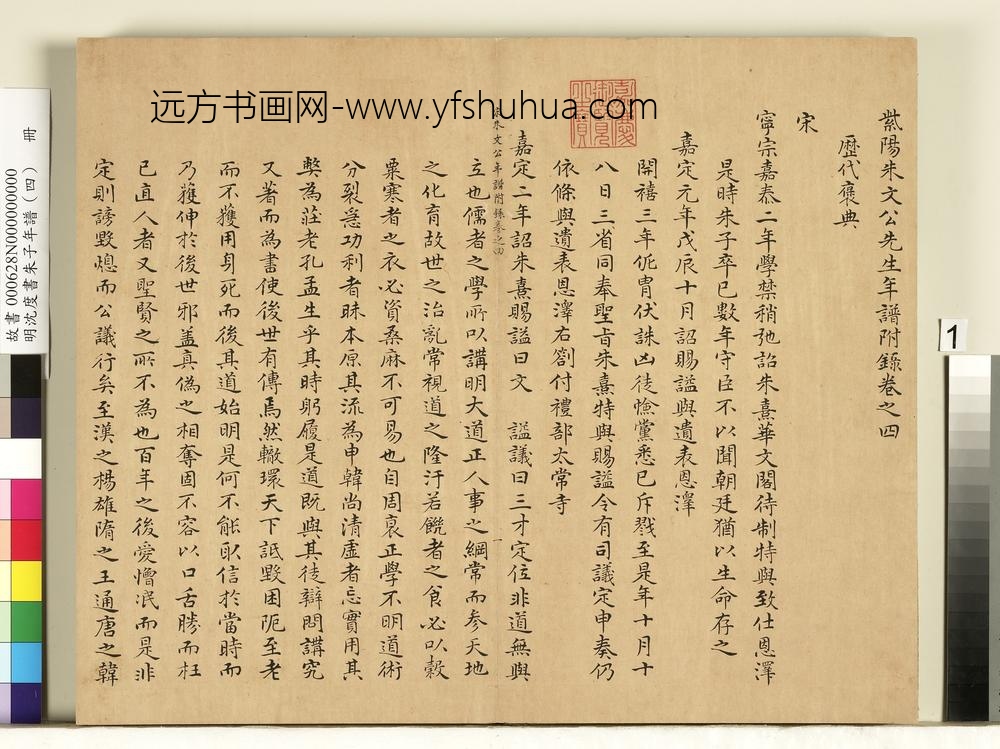 紫陽朱文公先生年譜附錄卷之四
歷代褒典
宋
寧宗嘉泰二年學禁稍弛詔朱熹華文閣待制特與致仕恩澤
是時朱子卒已數年守臣不以聞朝廷猶以生命存之
嘉定元年戊辰十月詔賜謚與遺表恩澤
開禧三年侂胄伏誅凶徒憸黨悉已斥戮至是年十月十
八日三省同奉聖旨朱熹特與賜謚令有司議定申奏仍
依條與遺表恩澤右劄付禮部太常寺
嘉定二年詔朱熹賜謚曰文 謚議曰三才定位非道無與
朱文公年譜附錄卷之四
一
立也儒者之學所以講明大道正人事之綱常而參天地
之化育故世之治亂常視道之隆汙若饑者之食必以穀
粟寒者之衣必資桑麻不可易也自周衰正學不明道術
分裂急功利者昧本原其流為申韓尚清虛者忘實用其
弊為莊老孔孟生乎其時躬履是道既與其徒辯問講究
又著而為書使後世有傳焉然轍環天下詆毀困阨至老
而不獲用身死而後其道始明是何不能取信於當時而
乃獲伸於後世邪蓋真偽之相奪固不容以口舌勝而枉
已直人者又聖賢之所不為也百年之後愛憎泯而是非
定則謗毀熄而公議行矣至漢之楊雄隋之王通唐之韓
远方书画网-www.yfshuhua.com
故書 000628N000000000 冊
明沈度書朱子年譜(四)
1